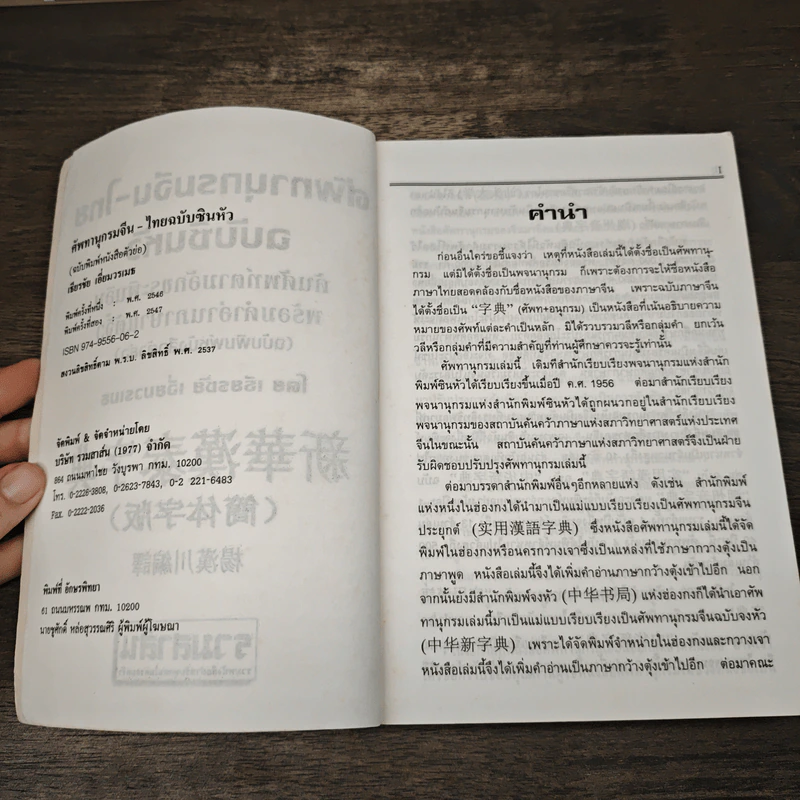 ศัพทานุกรมจีน - ไทยฉบับซินหัว
(ฉบับพิมพ์หนังสือตัวย่อ)
เธียรชัย เอี่ยมวรเมธ
พิมพ์ครั้งที่หนึ่ง : พ.ศ. 2546
พิมพ์ครั้งที่สอง : พ.ศ. 2547
ISBN 974-9556-06-2
สงวนลิขสิทธิ์ตาม พ.ร.บ. ลิขสิทธิ์ พ.ศ. 2537
จัดพิมพ์ & จัดจำหน่ายโดย
บริษัท รวมสาส์น (1977) จำกัด
864 ถนนมหาไชย วังบูรพา กทม. 10200
โทร. 0-2226-3808, 0-2623-7843, 0-2 221-6483
Fax. 0-2222-2036
พิมพ์ที่ อักษรพิทยา
61 ถนนมหรรณพ กทม. 10200
นายชูศักดิ์ หล่อสุวรรณศิริ ผู้พิมพ์ผู้โฆษณา
I
คำนำ
ก่อนอื่นใคร่ขอชี้แจงว่า เหตุที่หนังสือเล่มนี้ได้ตั้งชื่อเป็นศัพทานุ-
กรม แต่มิได้ตั้งชื่อเป็นพจนานุกรม ก็เพราะต้องการจะให้ชื่อหนังสือ
ภาษาไทยสอดคล้องกับชื่อหนังสือของภาษาจีน เพราะฉบับภาษาจีน
ได้ตั้งชื่อเป็น “字典” (ศัพท+อนุกรม) เป็นหนังสือที่เน้นอธิบายความ
หมายของศัพท์แต่ละคำเป็นหลัก มิได้รวบรวมวลีหรือกลุ่มคำ ยกเว้น
วลีหรือกลุ่มคำที่มีความสำคัญที่ท่านผู้ศึกษาควรจะรู้เท่านั้น
ศัพทานุกรมเล่มนี้ เดิมทีสำนักเรียบเรียงพจนานุกรมแห่งสำนัก
พิมพ์ซินหัวได้เรียบเรียงขึ้นเมื่อปี ค.ศ. 1956 ต่อมาสำนักเรียบเรียง
พจนานุกรมแห่งสำนักพิมพ์ซินหัวได้ถูกผนวกอยู่ในสำนักเรียบเรียง
พจนานุกรมของสถาบันค้นคว้าภาษาแห่งสภาวิทยาศาสตร์แห่งประเทศ
จีนในขณะนั้น สถาบันค้นคว้าภาษาแห่งสภาวิทยาศาสตร์จึงเป็นฝ่าย
รับผิดชอบปรับปรุงศัพทานุกรมเล่มนี้
ต่อมาบรรดาสำนักพิมพ์อื่นๆอีกหลายแห่ง ดังเช่น สำนักพิมพ์
แห่งหนึ่งในฮ่องกงได้นำมาเป็นแม่แบบเรียบเรียงเป็นศัพทานุกรมจีน
ประยุกต์ (实用漢語字典) ซึ่งหนังสือศัพทานุกรมเล่มนี้ได้จัด
พิมพ์ในฮ่องกงหรือนครกวางเจาซึ่งเป็นแหล่งที่ใช้ภาษากวางตุ้งเป็น
ภาษาพูด หนังสือเล่มนี้จึงได้เพิ่มคำอ่านภาษากว้างตุ้งเข้าไปอีก นอก
จากนั้นยังมีสำนักพิมพ์จงหัว (中华书局) แห่งฮ่องกงก็ได้นำเอาศัพ
ทานุกรมเล่มนี้มาเป็นแม่แบบเรียบเรียงเป็นศัพทานุกรมจีนฉบับจงหัว
(中华新字典) เพราะได้จัดพิมพ์จำหน่ายในฮ่องกงและกวางเจา
หนังสือเล่มนี้จึงได้เพิ่มคำอ่านเป็นภาษากว้างตุ้งเข้าไปอีก ต่อมาคณะ